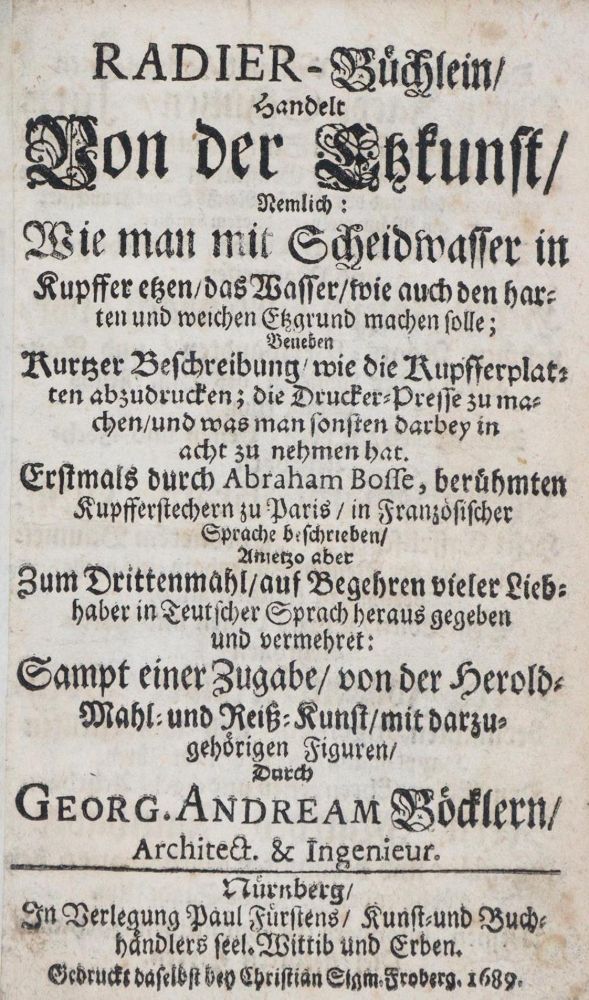 RADIER-Büchlein/
Handelt
Von der Etzkunst/
Nemlich:
Wie man mit Scheidwasser in
Kupffer etzen/das Wasser/wie auch den har-
ten und weichen Etzgrund machen solle;
Beneben
Kurtzer Beschreibung/wie die Kupfferplat-
ten abzudrucken; die Drucker-Presse zu ma-
chen/und was man sonsten darbey in
acht zu nehmen hat.
Erstmals durch Abraham Bosse, berühmten
Kupfferstechern zu Paris/ in Französischer
Sprache beschrieben/
Anietzo aber
Zum Drittenmahl/auf Begehren vieler Lieb-
haber in Teutscher Sprach heraus gegeben
und vermehret:
Sampt einer Zugabe/ von der Herold-
Mahl- und Reiß-Kunst/mit darzu-
gehörigen Figuren/
Durch
GEORG. ANDREAM Böcklern/
Architect. & Ingenieur.
Nürnberg/
In Verlegung Paul Fürstens/ Kunst-und Buch-
händlers seel. Wittib und Erben.
Gedruckt daselbst bey Christian Sigm. Froberg. 1689.